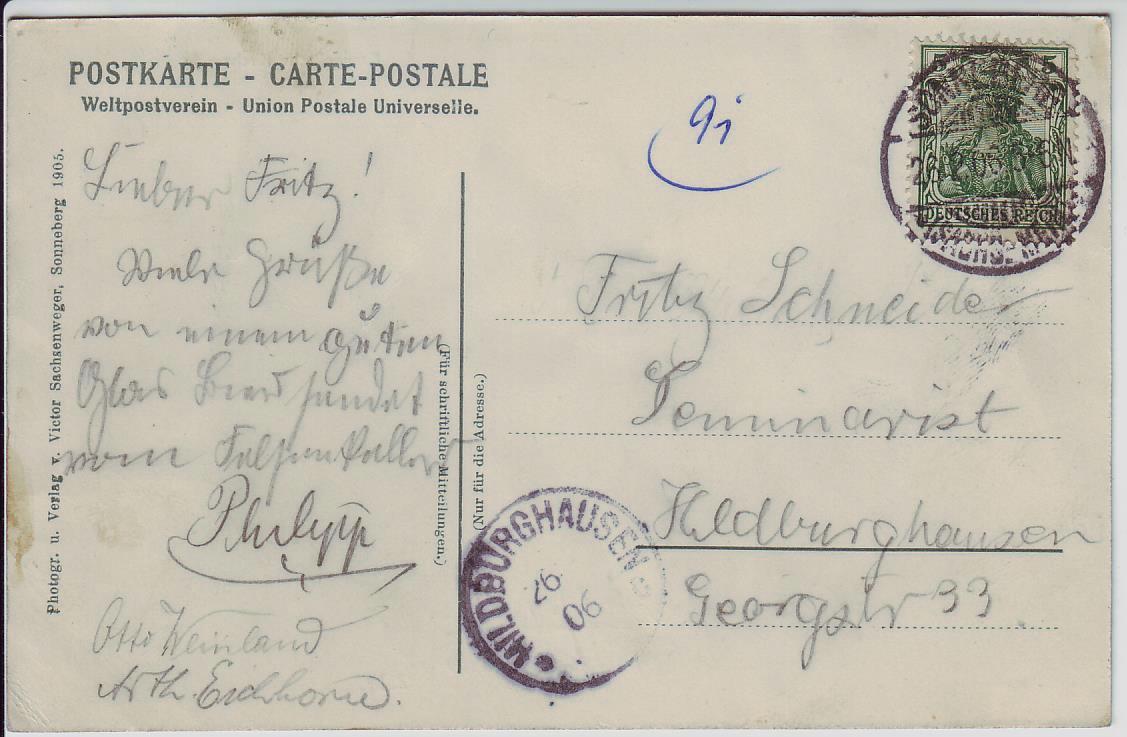 POSTKARTE - CARTE-POSTALE
Weltpostverein - Union Postale Universelle.
Photogr. u. Verlag v. Victor Sachsenweger, Sonneberg 1905.
Lieber Fritz!
Viele Grüße
von einem guten
Glas Bier sendet
vom Felsenkeller
Philipp
Otto Weinland
Arth. Eichhorn.
(Für schriftliche Mitteilungen.)
(Nur für die Adresse.)
9i
5 5
DEUTSCHES REICH
Fritz Schneider
Seminarist
Hildburghausen
Georgstr 33
HILDBURGHAUSEN
26
06